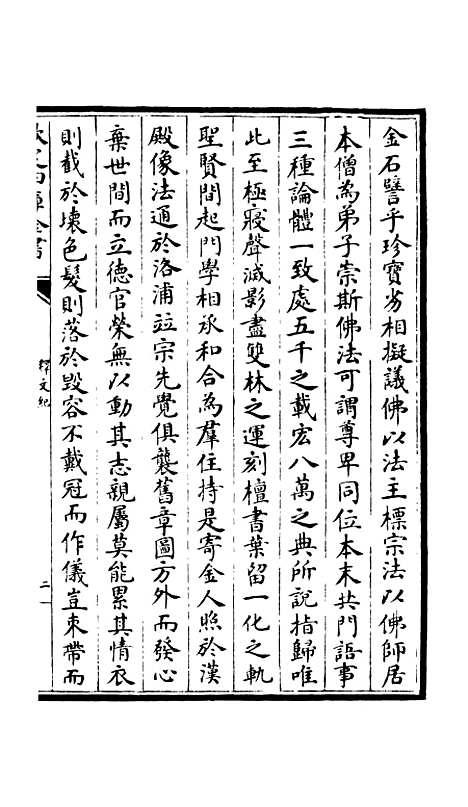 金石譬乎珍寶劣相擬議佛以法主標宗法以佛師居
本僧為弟子崇斯佛法可謂尊卑同位本末共門語事
三種論體一致處五千之載宏八萬之典所說指歸唯
此至極寢聲滅影盡雙林之運刻檀書葉留一化之軌
聖賢間起門學相承和合為羣住持是寄金人照於漢
殿像法通於洛浦竝宗先覺俱襲舊章圖方外而發心
棄世間而立德官榮無以動其志親屬莫能累其情衣
則截於壊色髮則落於毀容不戴冠而作儀豈束帶而
欽定四庫全書
釋文紀